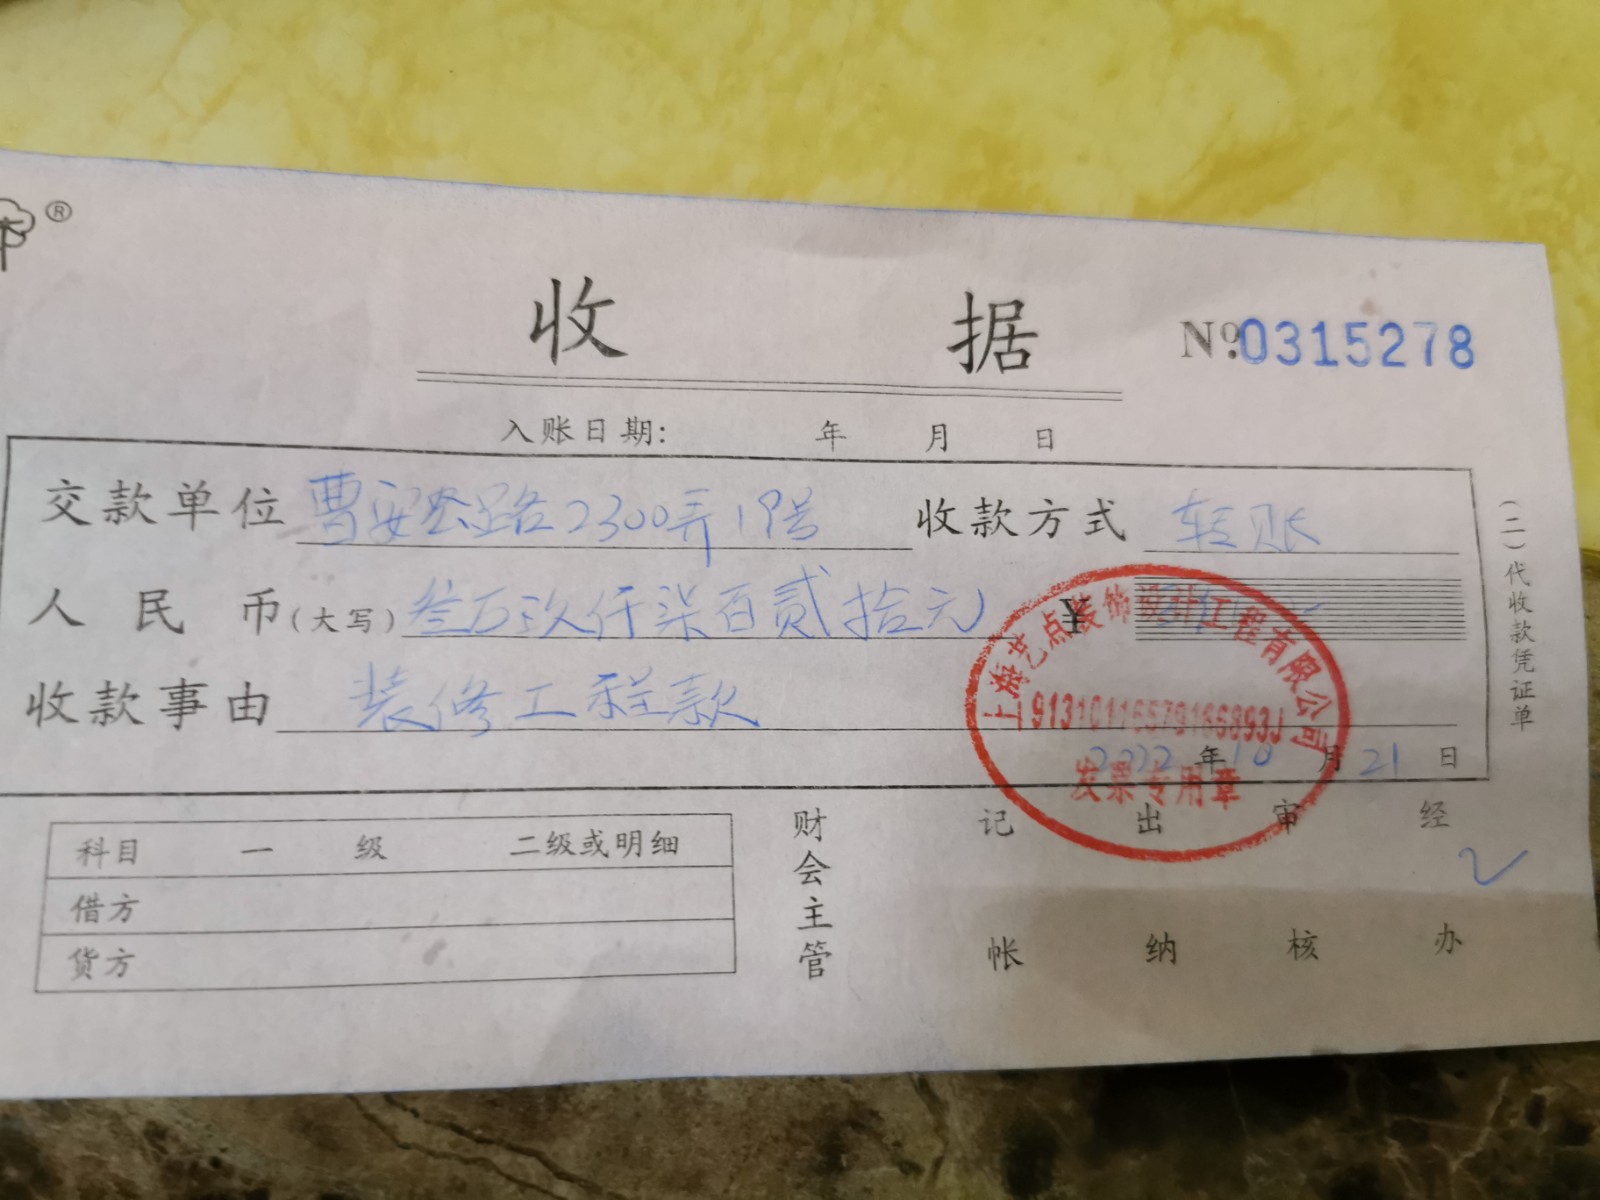 ®
收 据
№0315278
入账日期: 年 月 日
交款单位 曹安公路2300弄19号 收款方式 转账
人民币(大写) 叁万玖仟柒百贰拾元 ¥
收款事由 装修工程款
2022年10月21日
(二)代收款凭证单
上海艺点装饰设计工程有限公司
发票专用章
科目 一级 二级或明细
借方
贷方
财会主管 记帐 出纳 审核 经办